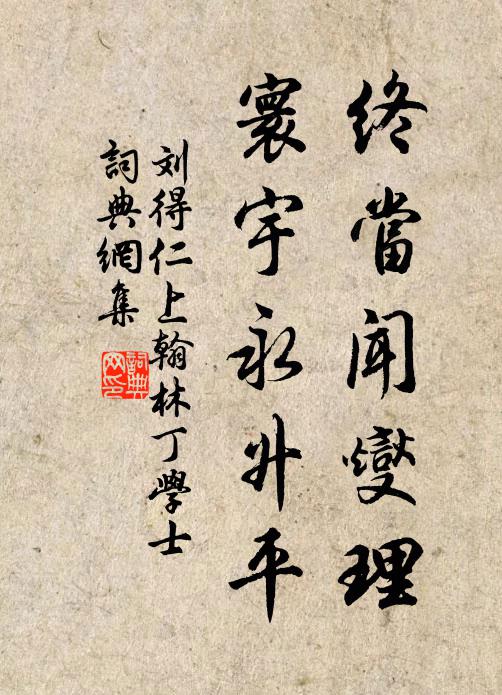 終當聞燮理
寰宇永升平
刘得仁上翰林丁學士
詞典網集
詞典网印